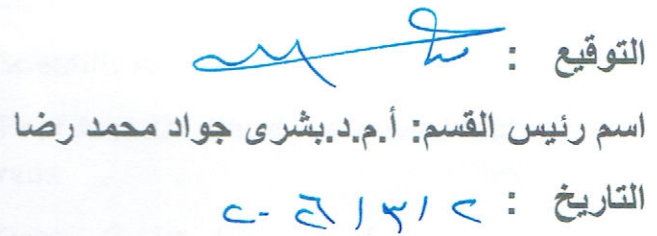 التوقيع :
اسم رئيس القسم: أ.م.د.بشرى جواد محمد رضا
التاريخ :